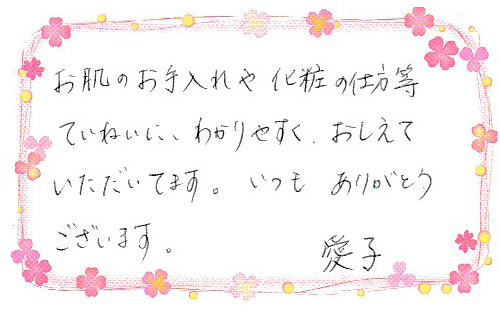 お肌のお手入れや化粧の仕方等
ていねいに、わかりやすく、おしえて
いただいてます。いつも ありがとう
ございます。
愛子